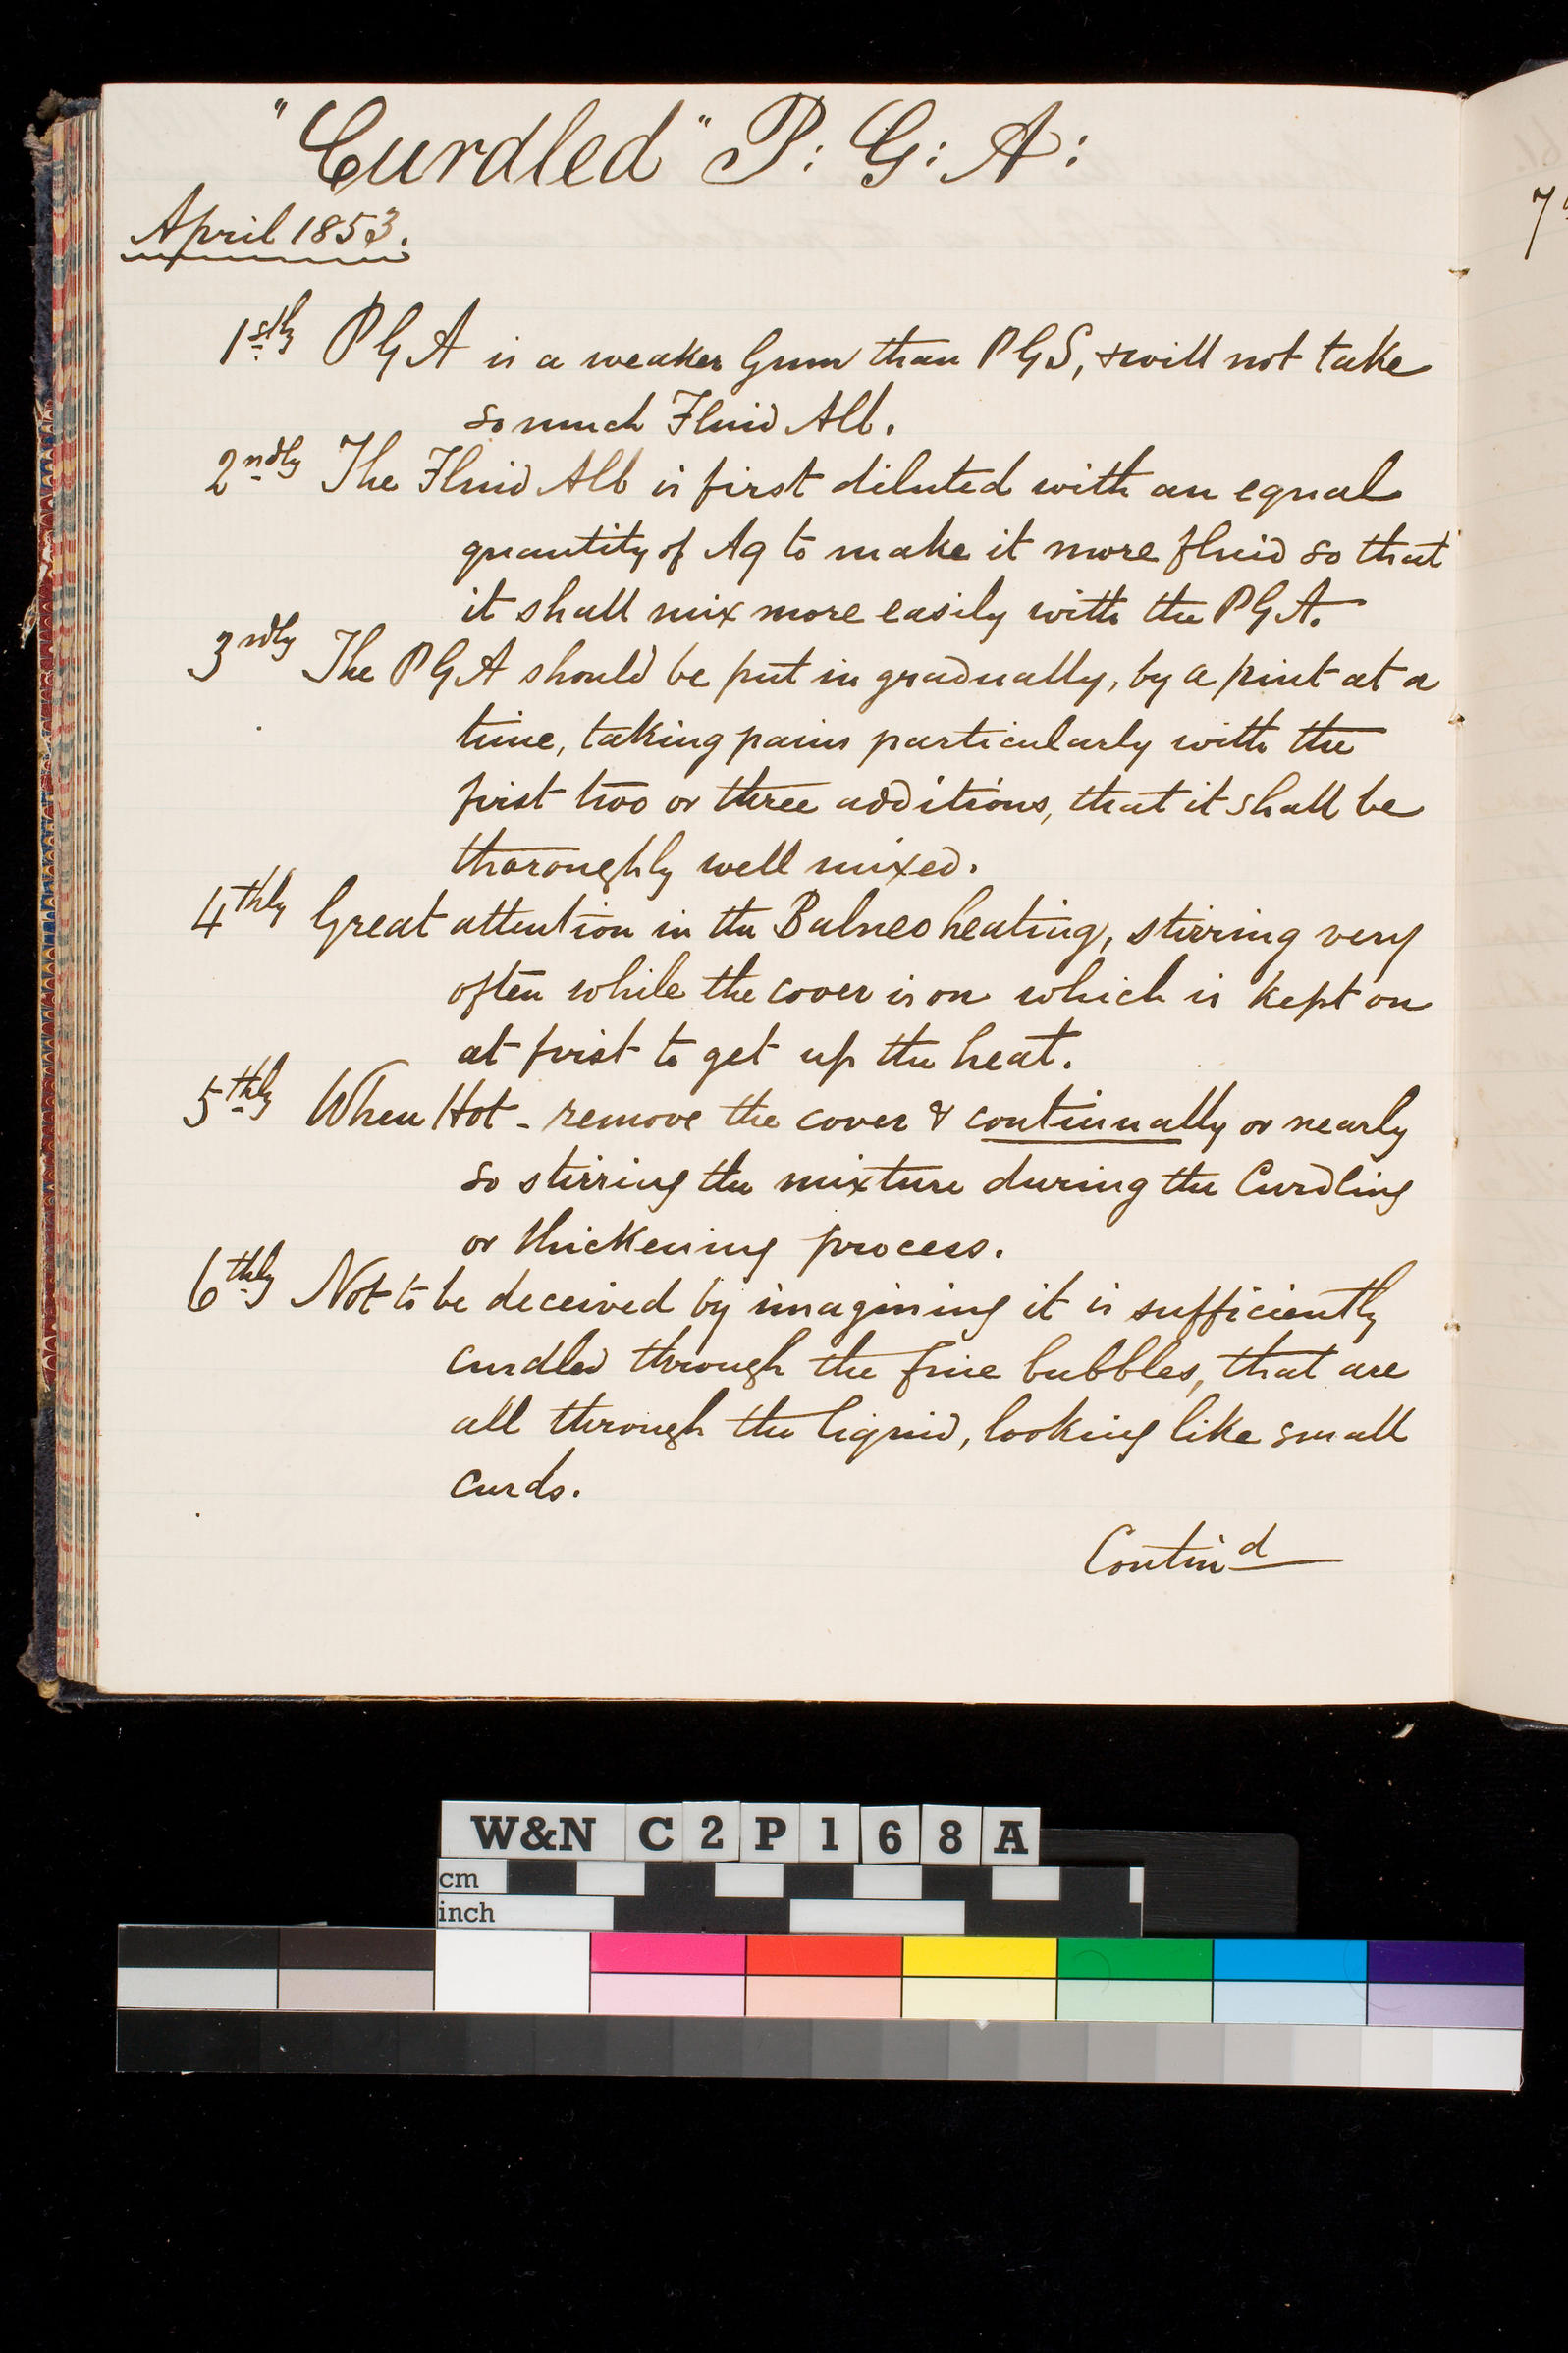 "Curdled" P: G: A:
April 1853.
1stly PGA is a weaker Gum than PGS, & will not take
so much Fluid Alb.
2ndly The Fluid Alb is first diluted with an equal
quantity of Aq to make it more fluid so that
it shall mix more easily with the PGA.
3rdly The PGA should be put in gradually, by a pint at a
time, taking pains particularly with the
first two or three additions, that it shall be
thoroughly well mixed.
4thly Great attention in the Balneo heating, stirring very
often while the cover is on which is kept on
at first to get up the heat.
5thly When Hot - remove the cover & continually or nearly
so stirring the mixture during the Curdling
or thickening process.
6thly Not to be deceived by imagining it is sufficiently
curdled through the fine bubbles, that are
all through the liquid, looking like small
curds.
Contind
7
W&N C2P168A
cm
inch